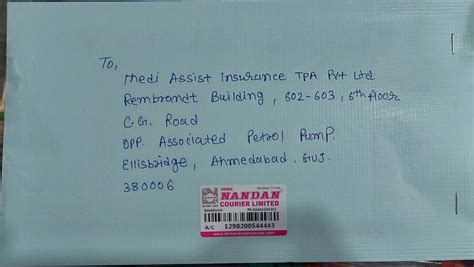 To,
Medi Assist insurance TPA Pvt Ltd
Rembrandt Building, 602-603, 6th floor
C.G. Road
OPP. Associated Petrol Pump.
Ellisbridge, Ahmedabad. GUJ.
380006
SHREE
NANDAN
COURIER LIMITED
A/C 1298200544443
www.shreenandancourier.com